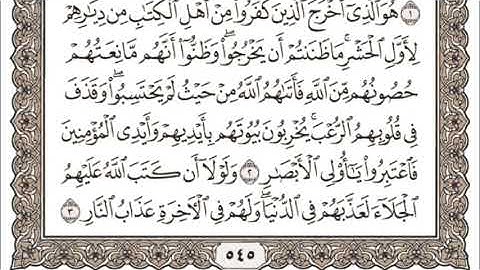 ١ هُوَ الَّذِي أَخْرَجَ الَّذِينَ كَفَرُوا مِنْ أَهْلِ الْكِتَابِ مِن دِيَارِهِمْ
لِأَوَّلِ الْحَشْرِ ۚ مَا ظَنَنتُمْ أَن يَخْرُجُوا ۖ وَظَنُّوا أَنَّهُم مَّانِعَتُهُمْ
حُصُونُهُم مِّنَ اللَّهِ فَأَتَاهُمُ اللَّهُ مِنْ حَيْثُ لَمْ يَحْتَسِبُوا ۖ وَقَذَفَ
فِي قُلُوبِهِمُ الرُّعْبَ ۚ يُخْرِبُونَ بُيُوتَهُم بِأَيْدِيهِمْ وَأَيْدِي الْمُؤْمِنِينَ
فَاعْتَبِرُوا يَا أُولِي الْأَبْصَارِ ٢ وَلَوْلَا أَن كَتَبَ اللَّهُ عَلَيْهِمُ
الْجَلَاءَ لَعَذَّبَهُمْ فِي الدُّنْيَا ۖ وَلَهُمْ فِي الْآخِرَةِ عَذَابُ النَّارِ ٣
٥٤٥